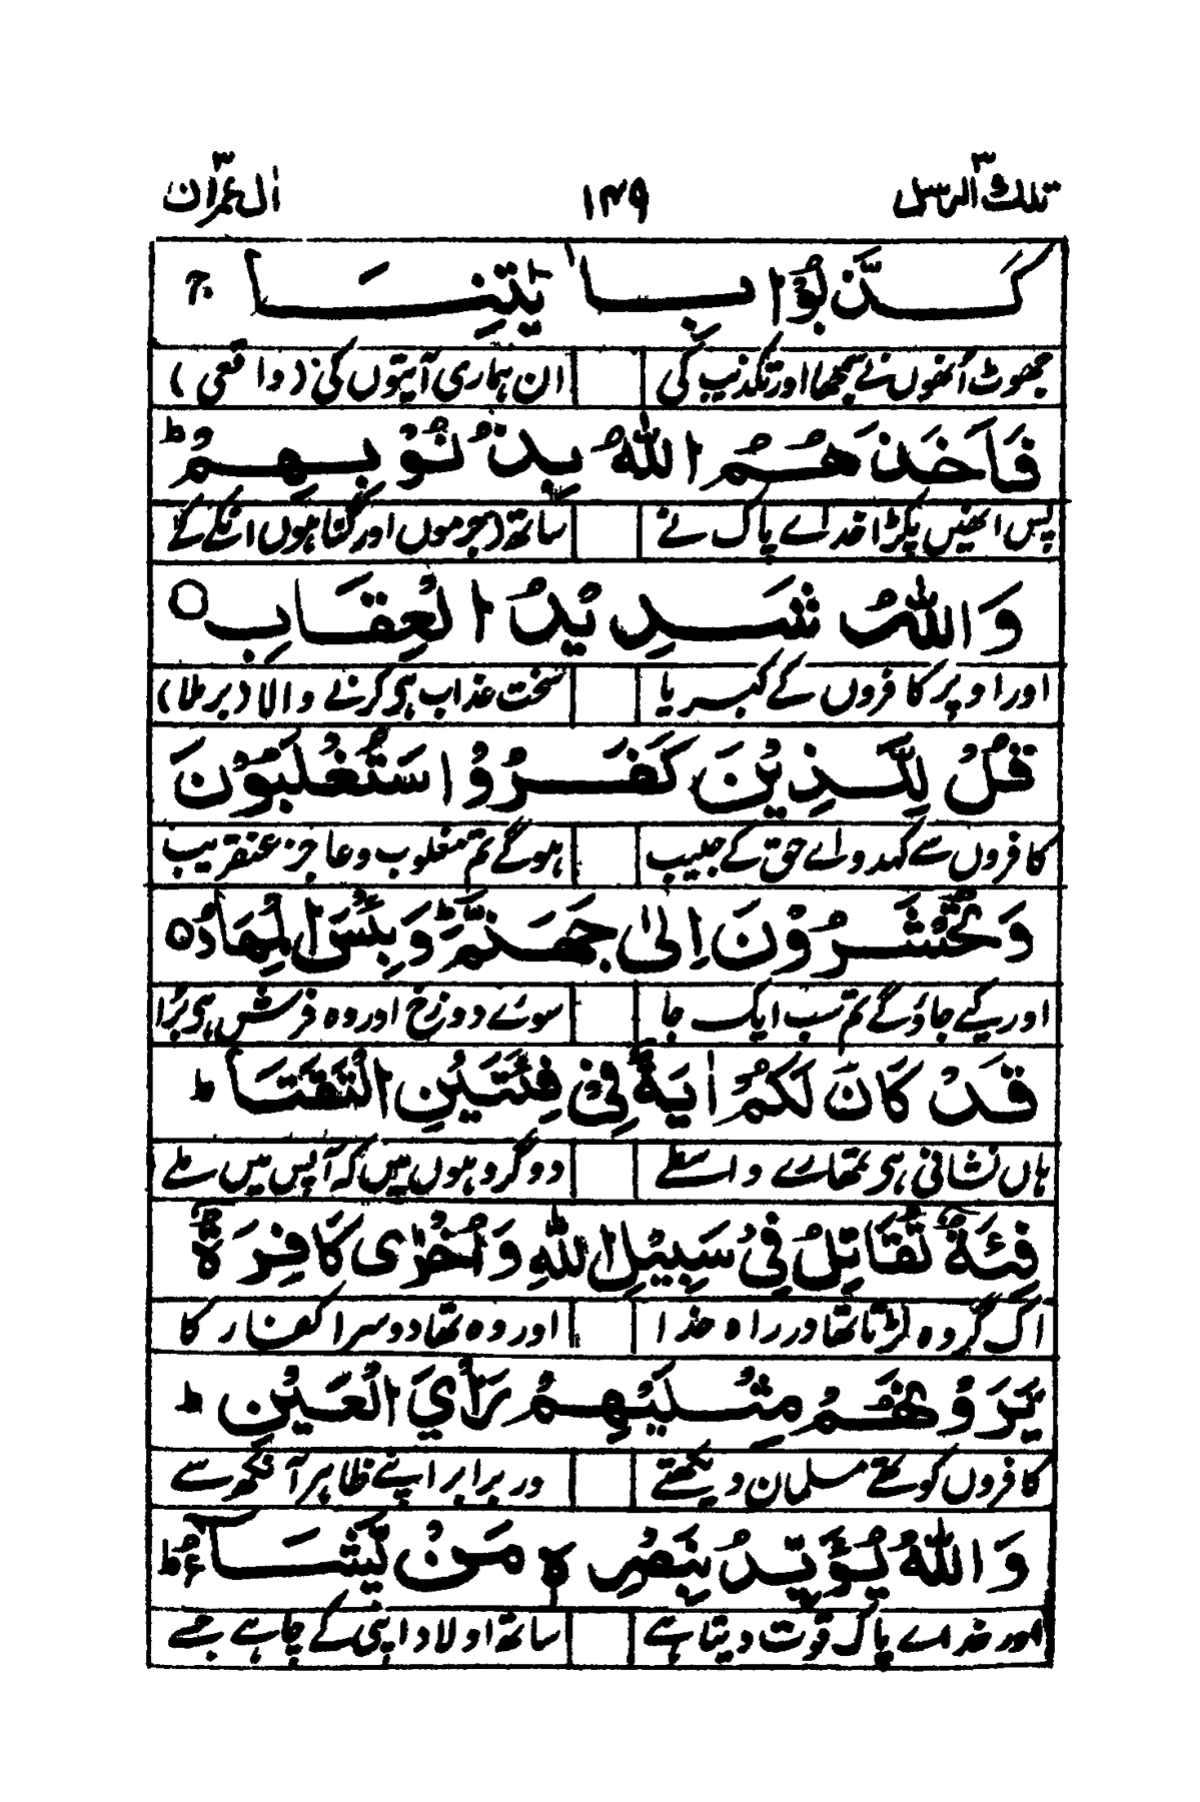 تلك الرسل ٣ ١٤٩ اٰل عمرٰن ٣
كَذَّبُوْا بِاٰيٰتِنَا ۚ
جھوٹ اُنھوں نے سمجھا اور تکذیب کی ان ہماری آیتوں کی (واقعی)
فَاَخَذَهُمُ اللّٰهُ بِذُنُوْبِهِمْ ؕ
پس انھیں پکڑا خداے پاک نے ساتھ (جرموں اور گناہوں انکے کے
وَاللّٰهُ شَدِيْدُ الْعِقَابِ ○
اور اوپر کافروں کے کبریا سخت عذاب ہی کرنے والا (برملا)
قُلْ لِّلَّذِيْنَ كَفَرُوْا سَتُغْلَبُوْنَ
کافروں سے کہدو اے حق کے حبیب ہوگے تم مغلوب و عاجز عنقریب
وَتُحْشَرُوْنَ اِلٰى جَهَنَّمَ ؕ وَبِئْسَ الْمِهَادُ ○
اور کیے جاؤگے تم سب ایک جا سوے دوزخ اور وہ فرش ہی بُرا
قَدْ كَانَ لَكُمْ اٰيَةٌ فِيْ فِئَتَيْنِ الْتَقَتَا ؕ
ہاں نشانی ہی تمھارے واسطے دو گروہوں میں کہ آپس میں ملے
فِئَةٌ تُقَاتِلُ فِيْ سَبِيْلِ اللّٰهِ وَاُخْرٰى كَافِرَةٌ
اک گروہ لڑتا تھا در راہ خدا اور وہ تھا دوسرا کفار کا
يَّرَوْنَهُمْ مِّثْلَيْهِمْ رَاْيَ الْعَيْنِ ؕ
کافروں کو تھے مسلمان دیکھتے در برابر اپنے ظاہر آنکھ سے
وَاللّٰهُ يُؤَيِّدُ بِنَصْرِهٖ مَنْ يَّشَآءُ ؕ
اور خداے پاک قوت دیتا ہے ساتھ اولاد اپنی کے چاہے جسے